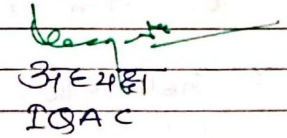 अध्यक्ष
IQAC